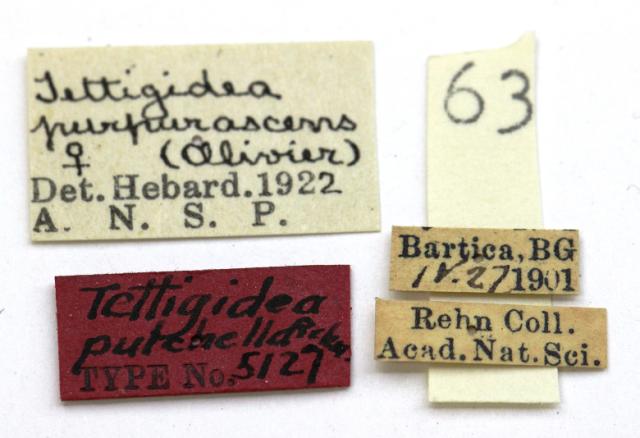 Tettigidea
purpurascens
♀ (Olivier)
Det. Hebard. 1922
A. N. S. P.
Tettigidea
pulchella Rehn.
TYPE No. 5127
63
Bartica, BG
IV. 27 1901
Rehn Coll.
Acad. Nat. Sci.